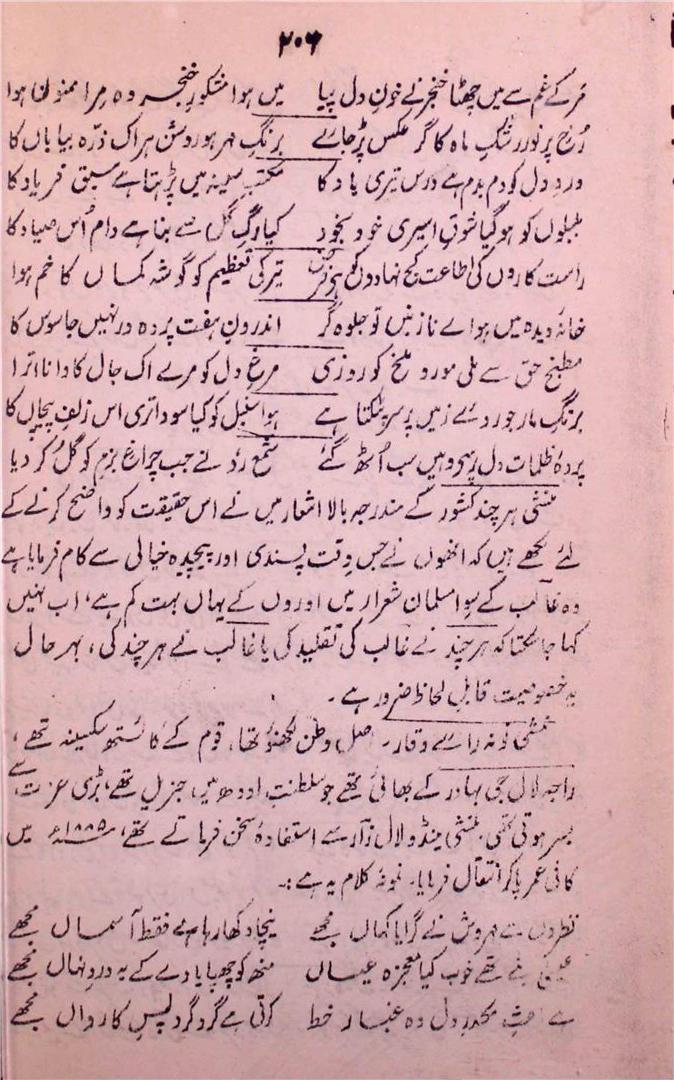 ۲۰۶
مر کے غم سے میں چھٹا خنجر نے خونِ دل پیا میں ہوا مشکورِ خنجر وہ مرا ممنوں ہوا
رُخِ پرنور رشکِ ماہ کا گر عکس پڑ جائے برنگِ مہر ہو روشن ہر اک ذرّہ بیاباں کا
وردِ دل کو دم بدم ہے درس تیری یاد کا مکتبِ سینہ میں پڑھتا ہے سبق فریاد کا
بلبلوں کو ہو گیا شوقِ اسیری خود بخود کیا رگِ گل سے بنا ہے دام اُس صیاد کا
راست کاروں کی اطاعت کج نہادوں کو تیر کی تعظیم کو گوشہ کماں کا خم ہوا
خانۂ دیدہ میں ہو اے نازنیں تو جلوہ گر اندرونِ ہفت پردہ در نہیں جاسوس کا
مطبخِ حق سے ملی مور و ملخ کو روزی مرغِ دل کو مرے اک جال کا دانا اترا
برنگِ مار جو روئے زمیں پر سر پٹکتا ہے ہوا سنبل کو کیا سودا تری اس زلفِ پیچاں کا
پردۂ ظلمات دل پر وہیں سب اُٹھ گئے شمع رو نے جب چراغِ بزم کو گُل کر دیا
منشی ہر چند کشور کے مندرجہ بالا اشعار میں نے اس حقیقت کو واضح کرنے کے
لئے لکھے ہیں کہ انھوں نے جس دقت پسندی اور پیچیدہ خیالی سے کام فرمایا ہے
وہ غالب کے سوا مسلمان شعراء میں اوروں کے یہاں بہت کم ہے، اب نہیں
کہا جا سکتا کہ ہر چند نے غالب کی تقلید کی یا غالب نے ہر چند کی، بہر حال
یہ خصوصیت قابلِ لحاظ ضرور ہے۔
منشی رائے وقار۔ اصل وطن لکھنؤ تھا، قوم کے کائستھ سکسینہ تھے،
راجہ لال جی بہادر کے بھائی تھے جو سلطنتِ اودھ میں جنرل تھے، بڑی عزت سے
بسر ہوتی تھی، منشی مینڈو لال زآر سے استفادۂ سخن فرماتے تھے، ۱۸۸۵ء میں
کافی عمر پا کر انتقال فرمایا۔ نمونۂ کلام یہ ہے:۔
نظروں سے مہروش نے گرایا کہاں مجھے نیچا دکھا رہا ہے فقط آسماں مجھے
عیسیٰ نے تھے خوب کیا معجزہ عیاں منھ کو چھپایا دے کے یہ دردِ نہاں مجھے
ہے مکدرِ دل وہ غبارِ خط کرتی ہے گردِ گرد پسِ کارواں مجھے